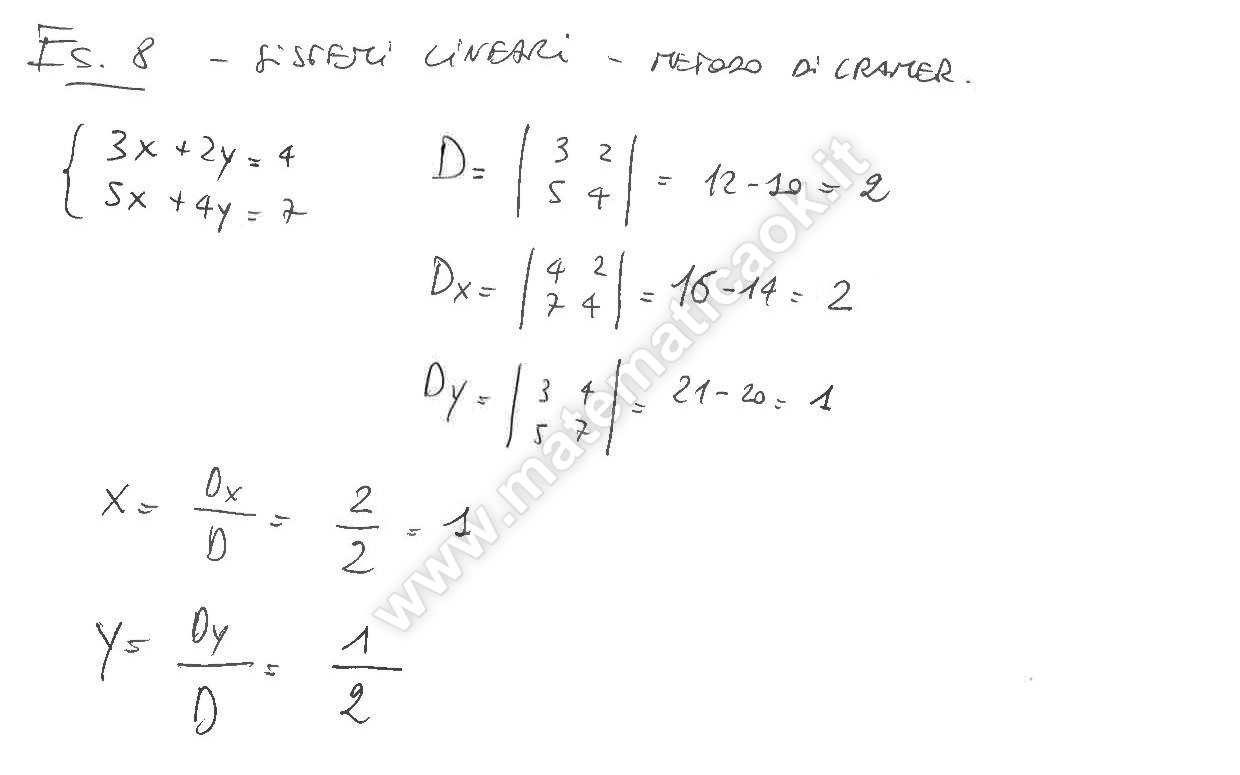 Es. 8 - SISTEMI LINEARI - METODO DI CRAMER.
{ 3x + 2y = 4
5x + 4y = 7
D = | 3 2 |
| 5 4 | = 12 - 10 = 2
Dx = | 4 2 |
| 7 4 | = 16 - 14 = 2
Dy = | 3 4 |
| 5 7 | = 21 - 20 = 1
x = Dx/D = 2/2 = 1
y = Dy/D = 1/2
www.matematicaok.it